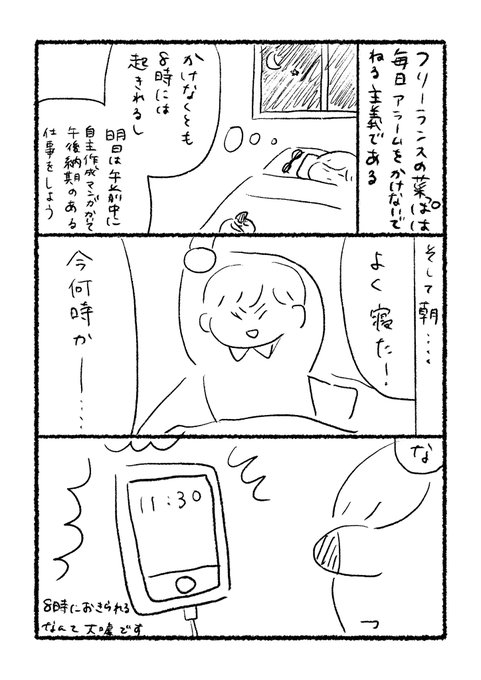 フリーランスの菜っぱは
毎日アラームをかけないで
ねる主義である
かけなくとも
8時には
起きれるし
明日は午前中に
自主作成マンガかいて
午後納期のある
仕事をしよう
そして朝....
よく寝た!
今何時かー.....
な
11:30
8時におきられる
なんて大嘘です